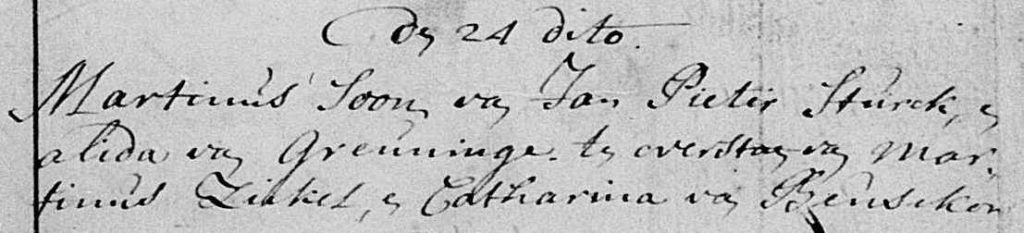 Den 24 dito.
Martinus Soon van Jan Pieter Sturck, en
alida van Greuninge. ten overstaen van Mar-
tinus Zinkel, en Catharina van Beusekon